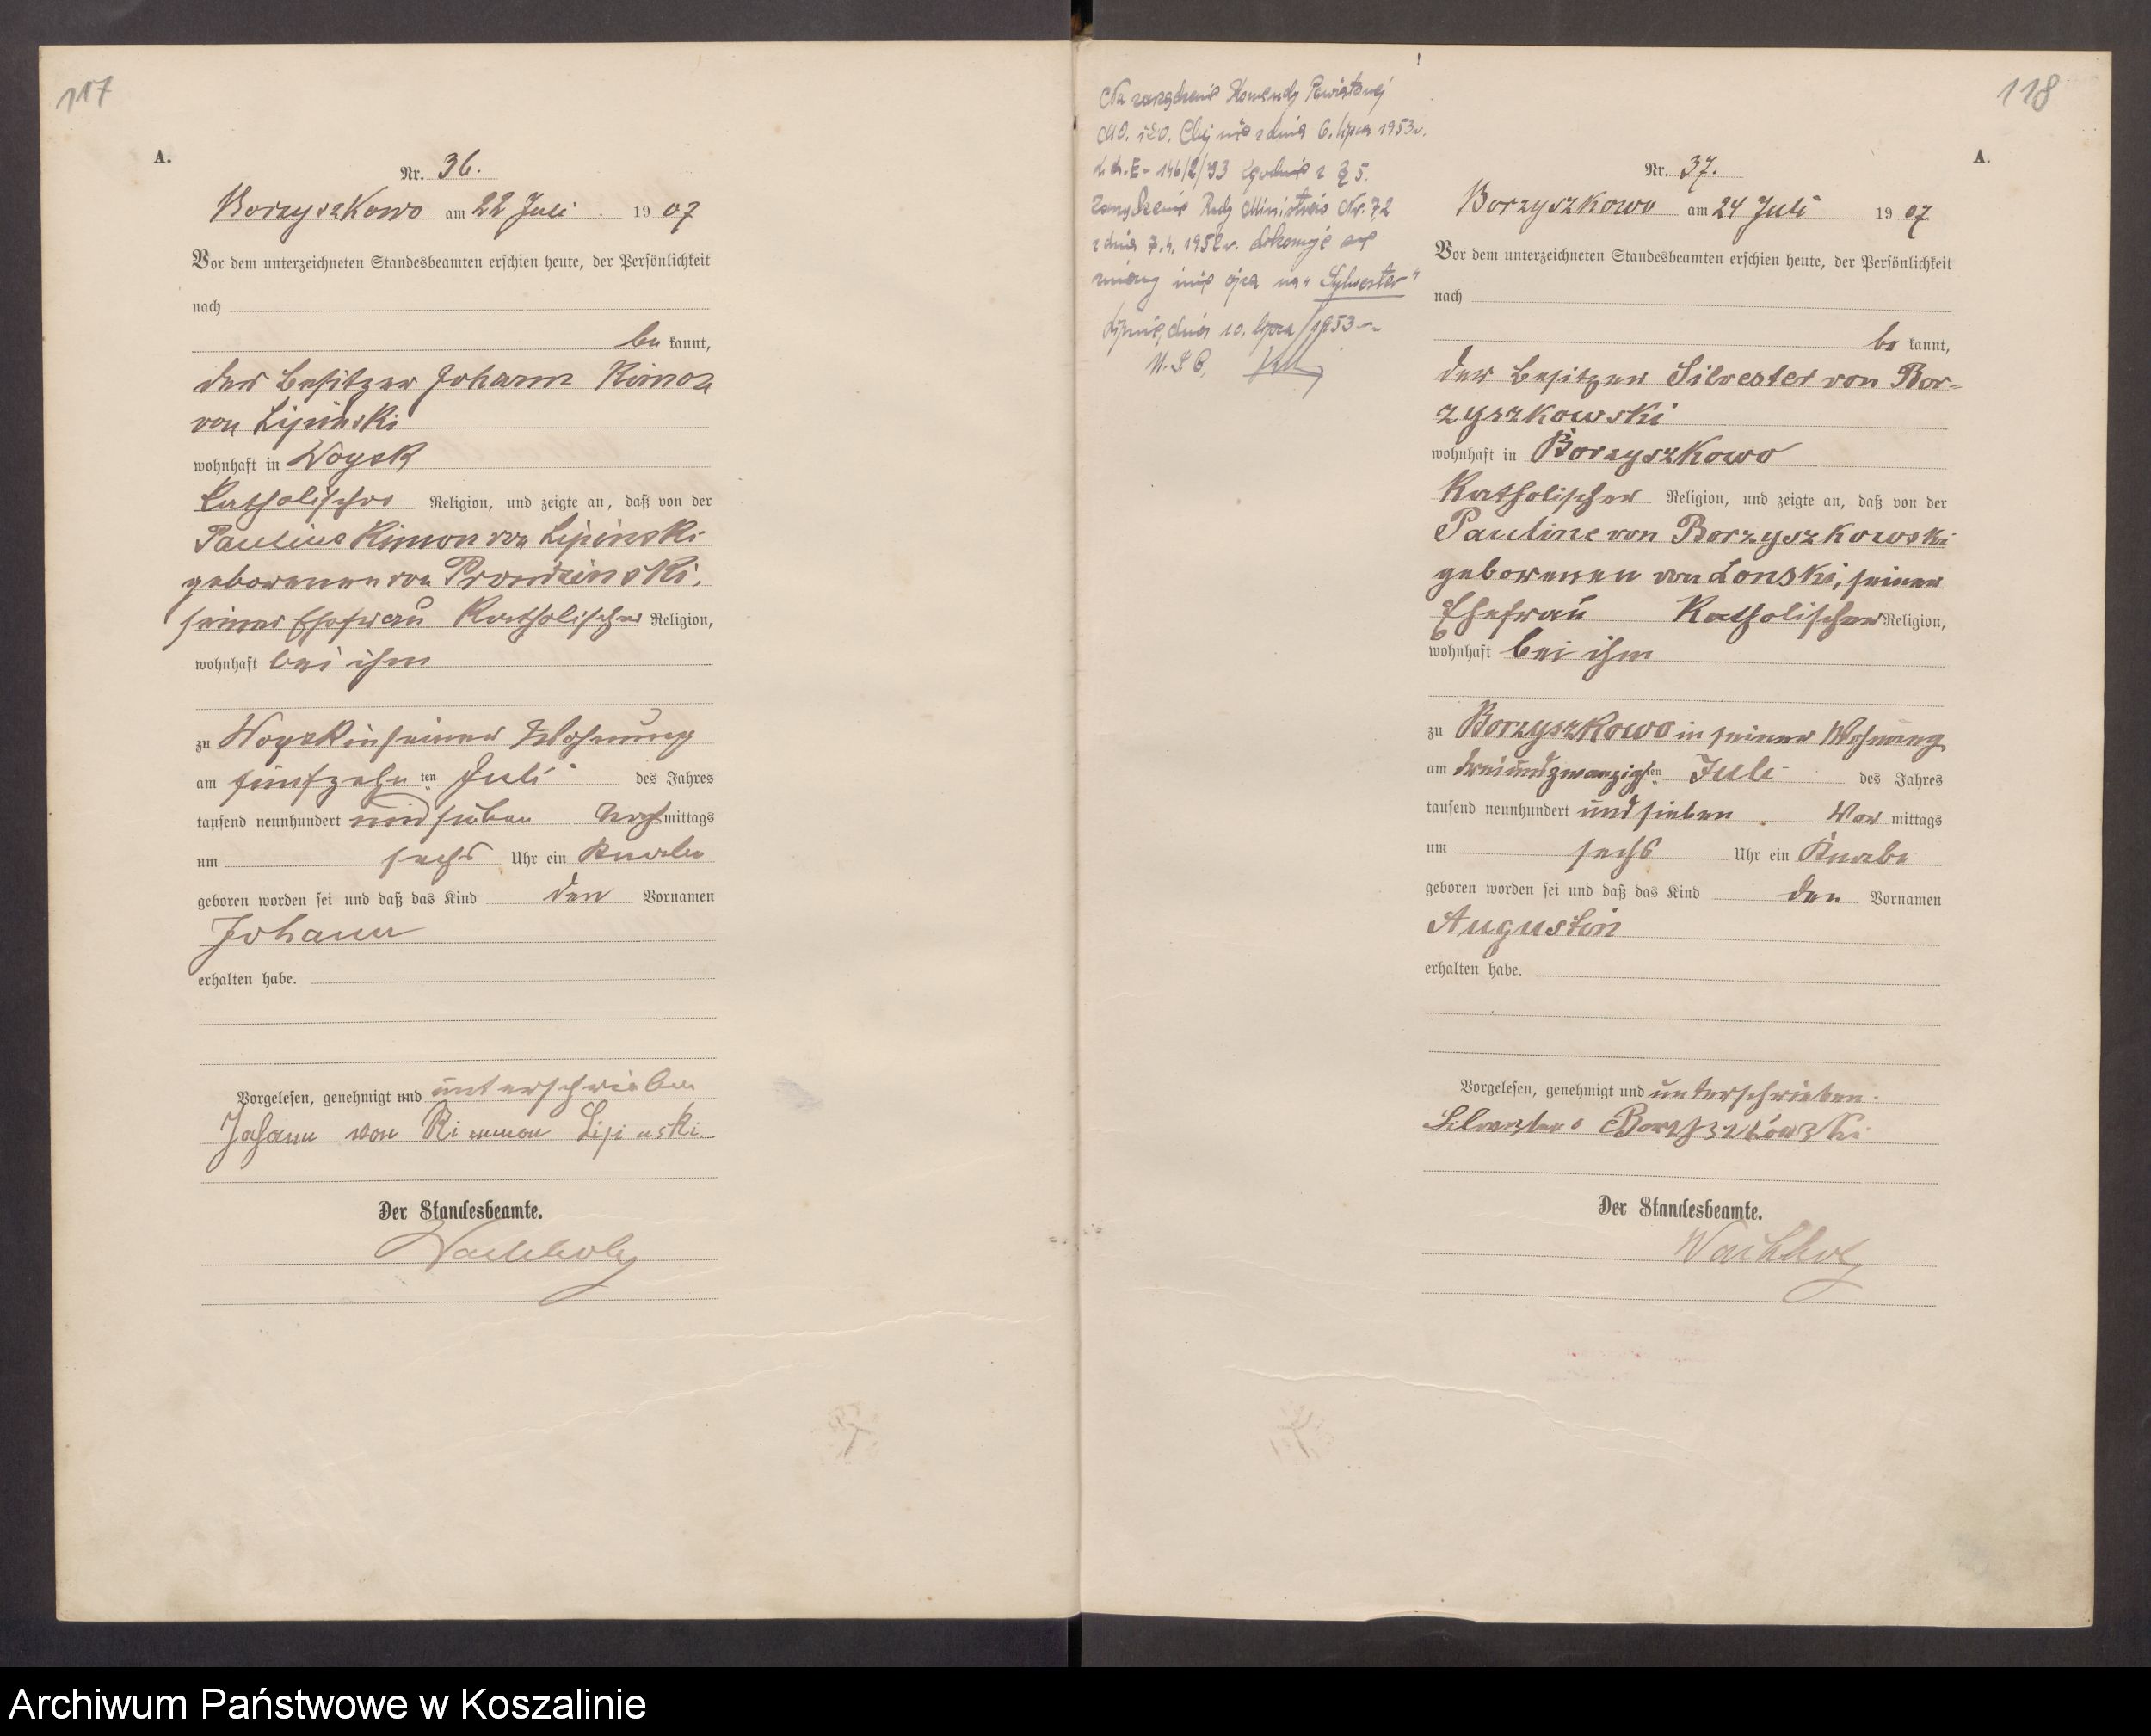 117
A.
Nr. 36.
Borzyszkowo am 22 Juli 1907
Vor dem unterzeichneten Standesbeamten erschien heute, der Persönlichkeit
nach
be kannt,
der Besitzer Johann Rimon
von Lipinski
wohnhaft in Woysk
katholischer Religion, und zeigte an, daß von der
Pauline Rimon von Lipinski
geborenen von
seiner Ehefrau Katholischer Religion,
wohnhaft bei ihm
zu Woysk in seiner Wohnung
am fünfzehn ten Juli des Jahres
tausend neunhundert und sieben Nachmittags
um sechs Uhr ein Knabe
geboren worden sei und daß das Kind den Vornamen
Johann
erhalten habe.
Vorgelesen, genehmigt und unterschrieben
Johann von Rimmon Lipinski
Der Standesbeamte.
Wachholz
118
Na zarządzenie Komendy Powiatowej
M.O. z dnia 6. lipca 1953 r.
zgodnie z § 5.
Rady Ministrów Nr. 72
z dnia 7.4. 1952 r. dokonuje się
zmiany imię ojca na "Sylwester"
dnia 10. lipca 1953 r.
U.S.C.
A.
Nr. 37.
Borzyszkowo am 24 Juli 1907
Vor dem unterzeichneten Standesbeamten erschien heute, der Persönlichkeit
nach
be kannt,
der Besitzer Silvester von Bor-
zyszkowski
wohnhaft in Borzyszkowo
Katholischer Religion, und zeigte an, daß von der
Pauline von Borzyszkowski
geborenen von Lonski, seiner
Ehefrau Katholischer Religion,
wohnhaft bei ihm
zu Borzyszkowo in seiner Wohnung
am dreiundzwanzigsten Juli des Jahres
tausend neunhundert und sieben Vor mittags
um sechs Uhr ein Knabe
geboren worden sei und daß das Kind den Vornamen
Augustin
erhalten habe.
Vorgelesen, genehmigt und unterschrieben.
Borzyszkowski
Der Standesbeamte.
Wachholz
Archiwum Państwowe w Koszalinie